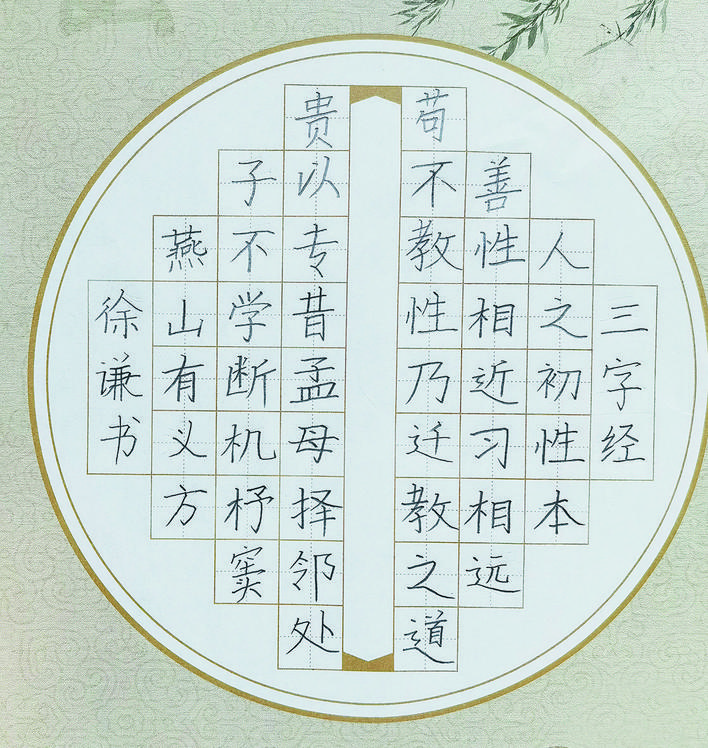 三字经
人之初性本
善性相近习相远
苟不教性乃迁教之道
贵以专昔孟母择邻处
子不学断机杼窦
燕山有义方
徐谦书